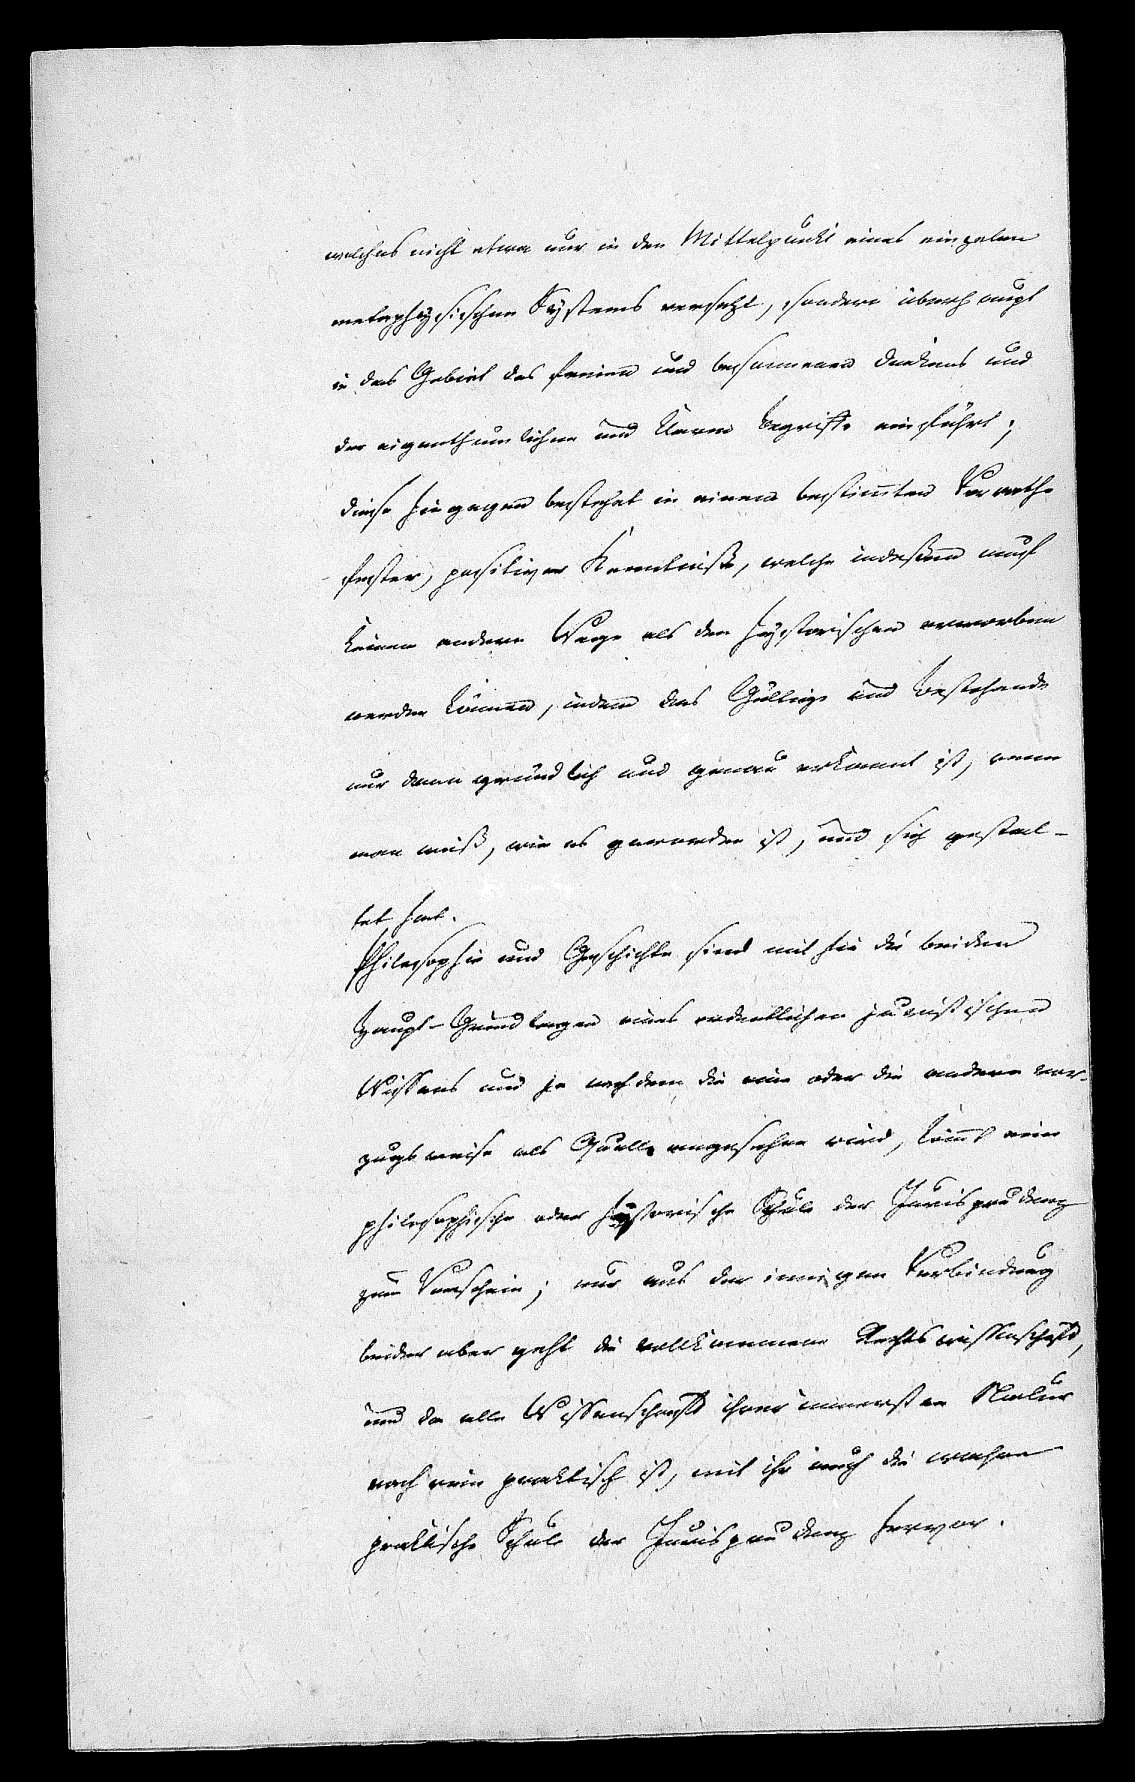 welches nicht etwa nur in den Mittelpunkt eines einzelnen
metaphysischen Systems versetzt, sondern überhaupt
in das Gebiet des freien und besonnenen Denkens und
der eigenthümlichen und klaren Begriffe einführt;
diese hingegen bestehet in einem bestimmten Vorrathe
fester, positiver Kenntniße, welche indeßen auf
keinem andern Wege als den hystorischen erworben
werden können, indem das Gültige und Bestehende
nur dann gründlich und genau erkannt ist, wenn
man weiß, wie es geworden ist, und sich gestal-
tet hat.
Philosophie und Geschichte sind mithin die beiden
Haupt-Grundlagen eines ordentlichen juristischen
Wissens und je nachdem die eine oder die andere vor-
zugsweise als Quelle angesehen wird, kömmt eine
philosophische oder hystorische Schule der Jurisprudenz
zum Vorschein; nur aus der innigen Verbindung
beider aber geht die vollkommene Rechtswissenschaft,
und da alle Wissenschaft ihrer innersten Natur
nach rein praktisch ist, mit ihr auch die wahre
praktische Schule der Jurisprudenz hervor.